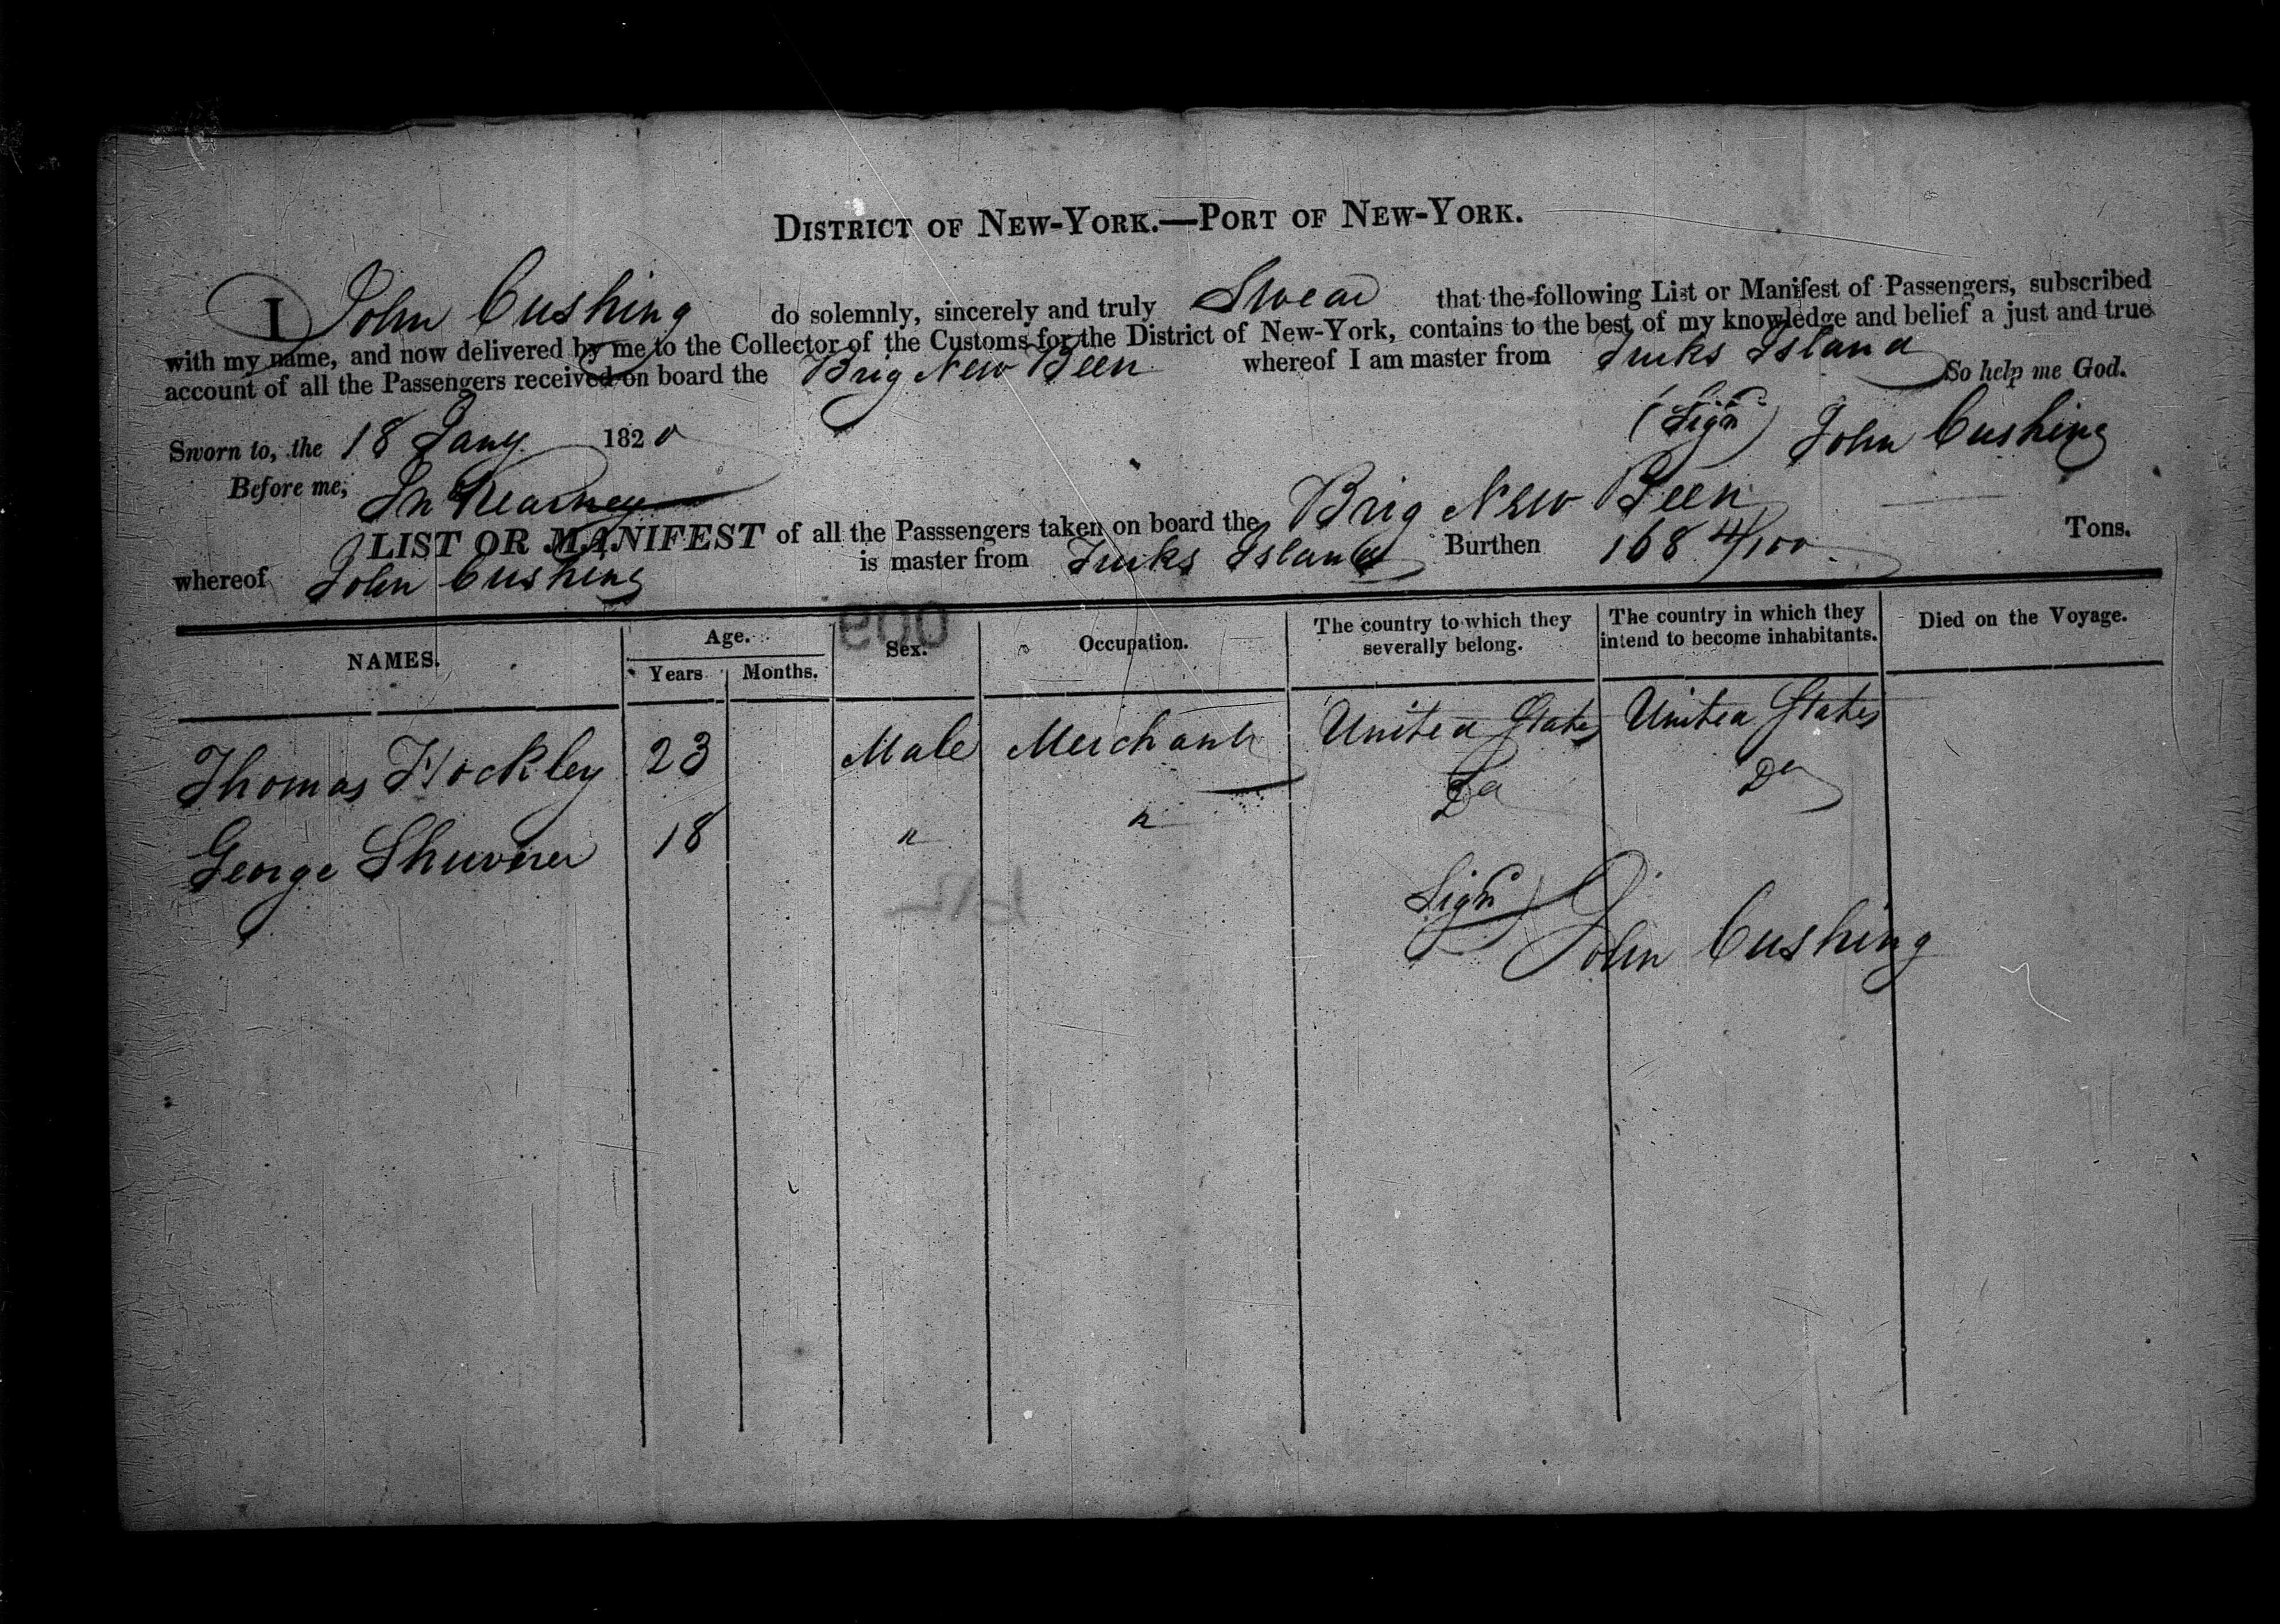 DISTRICT OF NEW-YORK.—PORT OF NEW-YORK.
I John Cushing do solemnly, sincerely and truly Swear that the following List or Manifest of Passengers, subscribed
with my name, and now delivered by me to the Collector of the Customs for the District of New-York, contains to the best of my knowledge and belief a just and true
account of all the Passengers received on board the Brig New Been whereof I am master from Turks Island So help me God.
Sworn to, the 18 Jany 1820 (Signd) John Cushing
Before me, Kearney
LIST OR MANIFEST of all the Passsengers taken on board the Brig New Been
whereof John Cushing is master from Turks Island Burthen 168 4/100 Tons.
NAMES. Age. Years Months. Sex. Occupation. The country to which they severally belong. The country in which they intend to become inhabitants. Died on the Voyage.
Thomas Hockley 23 Male Merchant United States United States
George 18 " " Do Do
Signd) John Cushing